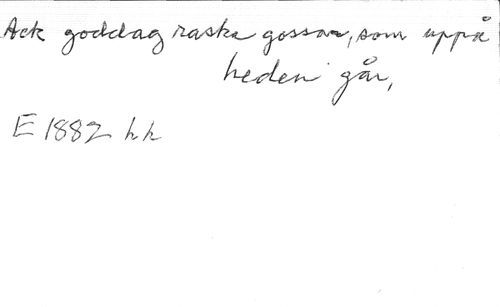 Ack goddag raska gossar, som uppå
heden går,
E 1882 hh